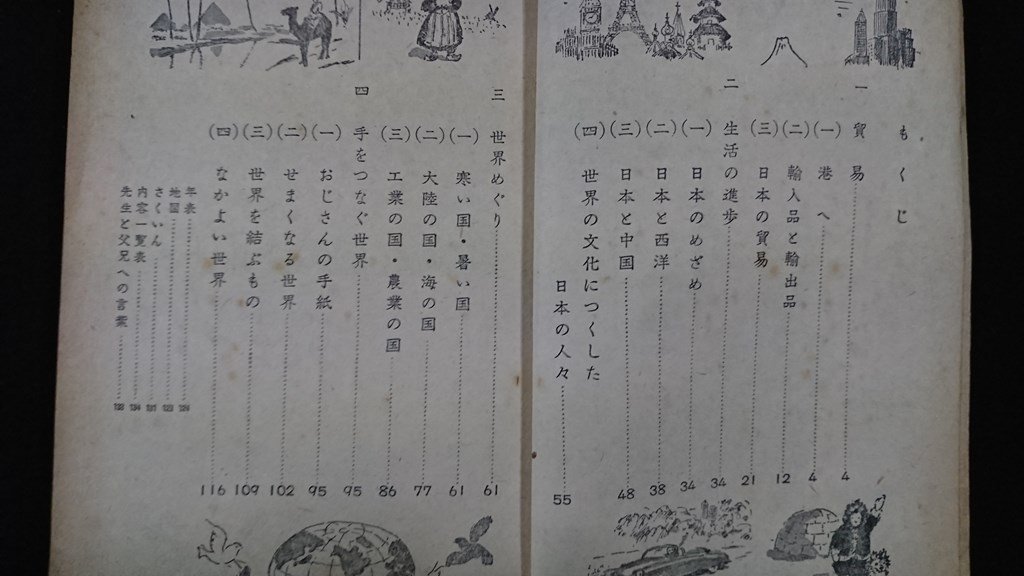 もくじ
一 貿易 4
(一) 港へ 4
(二) 輸入品と輸出品 12
(三) 日本の貿易 21
二 生活の進歩 34
(一) 日本のめざめ 34
(二) 日本と西洋 38
(三) 日本と中国 48
(四) 世界の文化につくした
日本の人々 55
三 世界めぐり 61
(一) 寒い国・暑い国 61
(二) 大陸の国・海の国 77
(三) 工業の国・農業の国 86
四 手をつなぐ世界 95
(一) おじさんの手紙 95
(二) せまくなる世界 102
(三) 世界を結ぶもの 109
(四) なかよい世界 116
年表
地図
さくいん
内容一覧表
先生と父兄への言葉